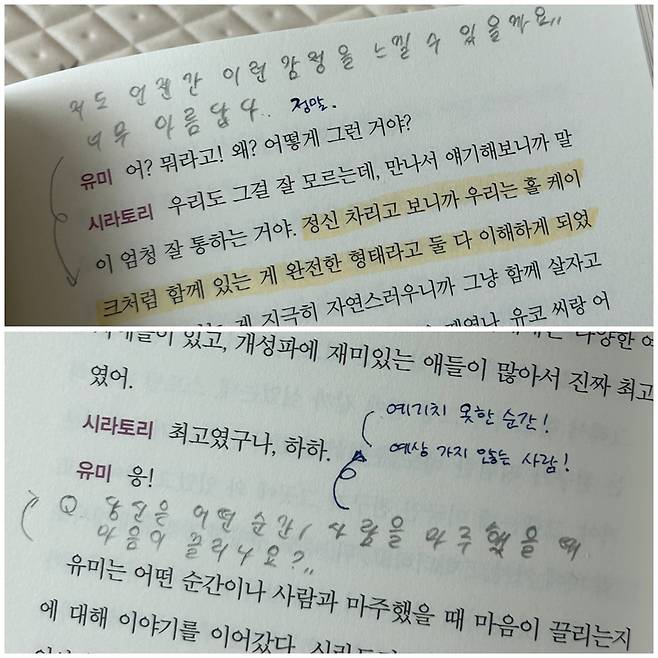 저도 언젠간 이런 감정을 느낄 수 있을까요..
너무 아름답다.. 정말.
유미 어? 뭐라고! 왜? 어떻게 그런 거야?
시라토리 우리도 그걸 잘 모르는데, 만나서 얘기해보니까 말
이 엄청 잘 통하는 거야. 정신 차리고 보니까 우리는 홀 케이
크처럼 함께 있는 게 완전한 형태라고 둘 다 이해하게 되었
게 지극히 자연스러우니까 그냥 함께 살자고
유코 씨랑 어
다양한
있고, 개성파에 재미있는 애들이 많아서 진짜 최고
였어.
예기치 못한 순간!
시라토리 최고였구나, 하하.
예상 가지 않는 사람!
유미 응!
Q 당신은 어떤 순간/사람을 마주했을 때
마음이 끌리나요?..
유미는 어떤 순간이나 사람과 마주했을 때 마음이 끌리는지
에 대해 이야기를 이어갔다.